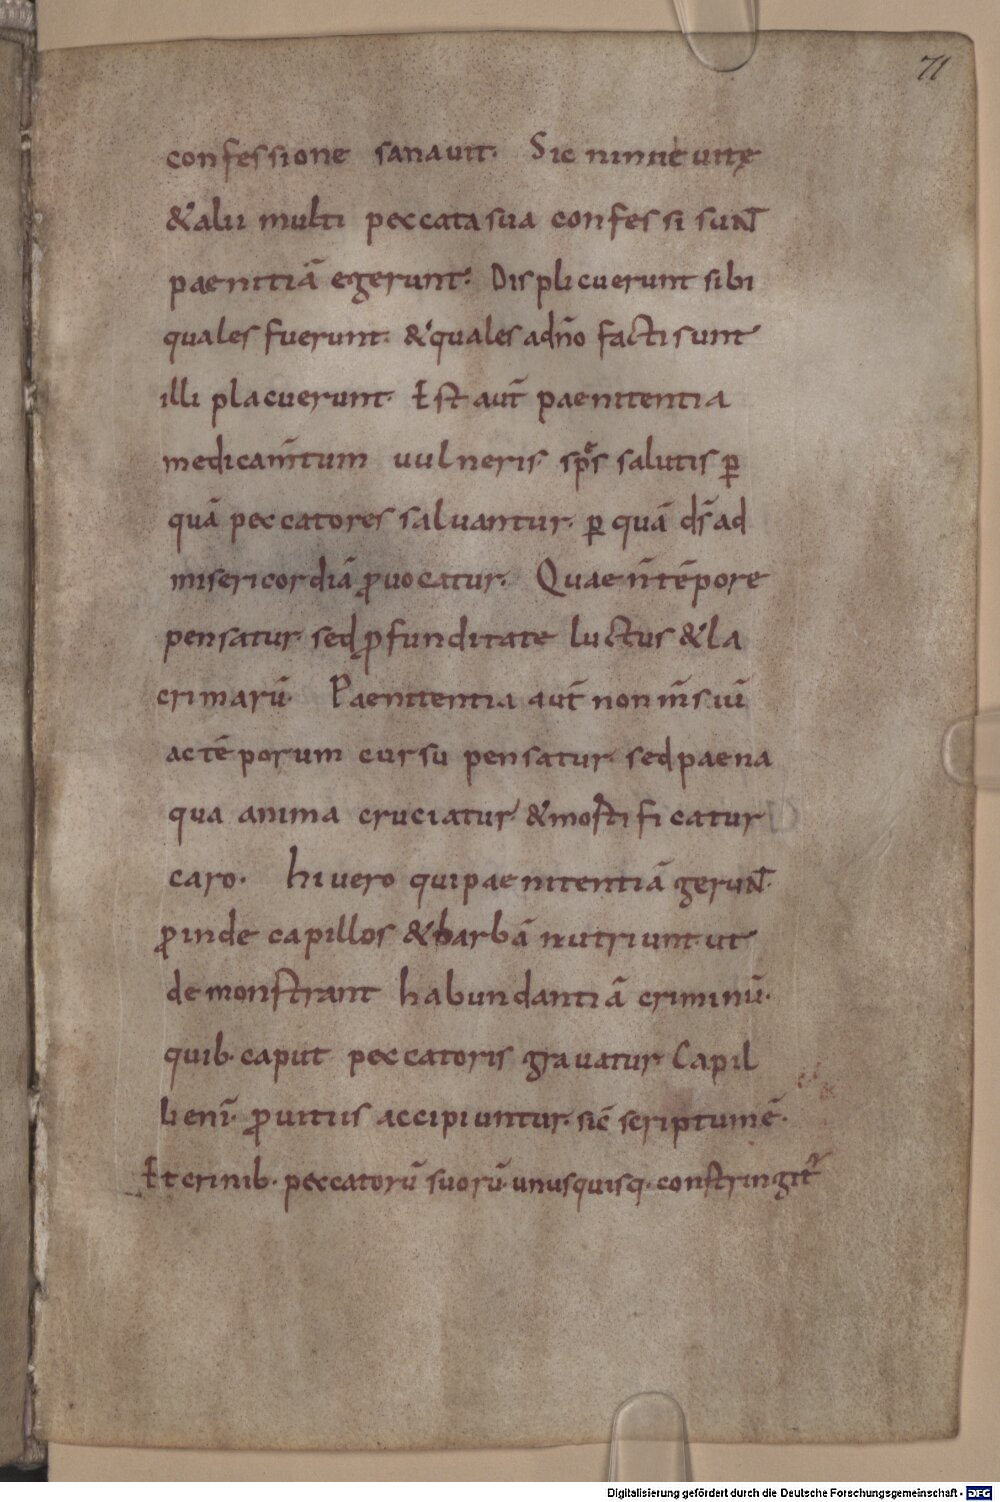 71
confessione sanauit. Sic niniuitę
& alii multi peccata sua confessi suNT̄
paenitiā egerunt. Displicuerunt sibi
quales fuerunt. & quales ad dn̄o facti sunt
illi placuerunt. Est aut̄ paenitentia
medicam̄tum uulneris sp̄es salutis ꝑ
quā peccatores saluantur. ꝑ quā ds̄ ad
misericordiā ꝓuocatur. Quae n̄ tēpore
pensatur. sed ꝓfunditate luctus & la
crimarū. Paenitentia aut̄ non m̄suū
ac tēporum cursu pensatur. sed paena
qua anima cruciatur & mortificatur
caro. hi uero qui paenitentiā geruNT̄.
ꝓinde capillos & barbā nutriunt ut
demonstrant habundantiā criminū.
quib. caput peccatoris grauatur. Capil
li eni. ꝓ uitiis accipiuntur. sic̄ scriptum ē.
Et crinib. peccatorū suorū unusquisq. constringit᷑
Digitalisierung gefördert durch die Deutsche Forschungsgemeinschaft - DFG